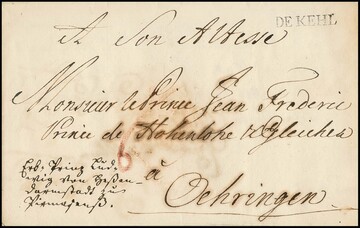 DE KEHL
A Son Altesse
Monsieur le Prince Jean Frederic
Prince de Hohenlohe & Gleichen
à
Oehringen
6
Erb. Prinz Lud-
wig von Heßen-
darmstadt zu
Pirmasenß.